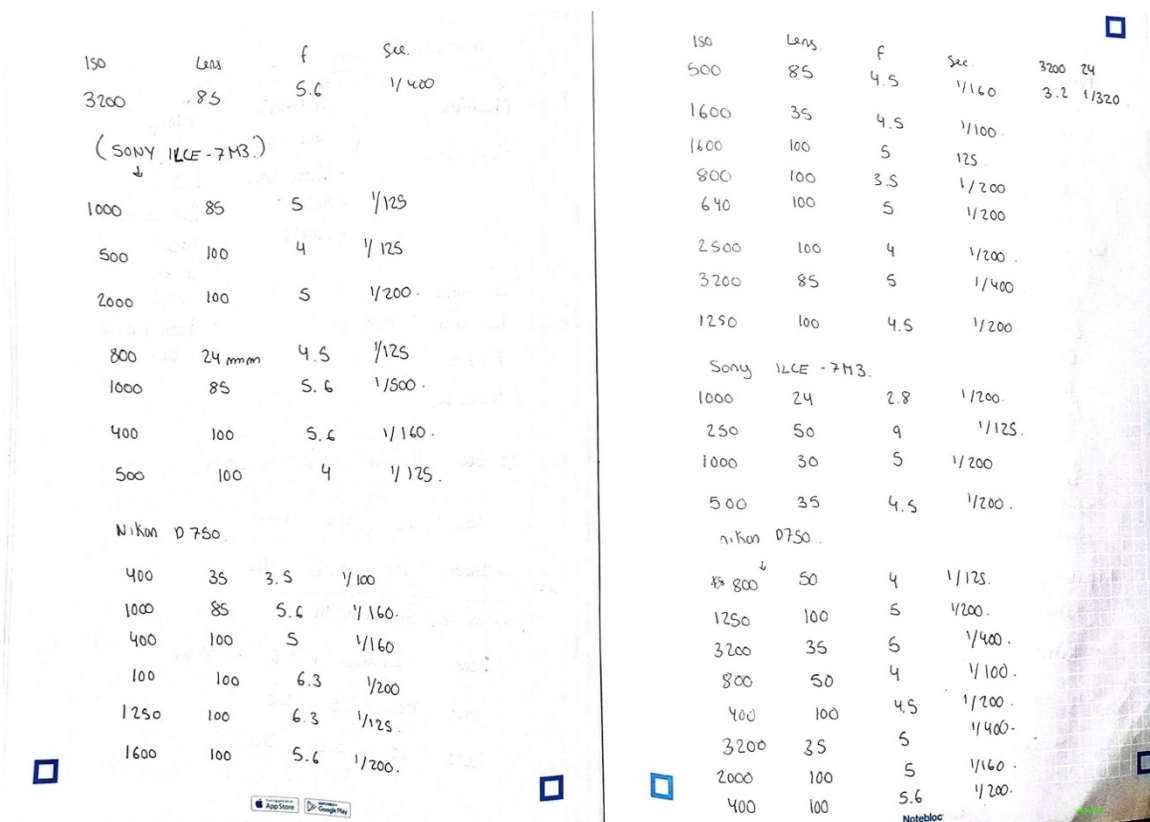 ISO Lens f Sec.
3200 85 5.6 1/400
(SONY ILCE-7M3.)
1000 85 5 1/125
500 100 4 1/125
2000 100 5 1/200.
800 24 mm 4.5 1/125
1000 85 5.6 1/500.
400 100 5.6 1/160.
500 100 4 1/125.
Nikon D750.
400 35 3.5 1/100
1000 85 5.6 1/160.
400 100 5 1/160
100 100 6.3 1/200
1250 100 6.3 1/125.
1600 100 5.6 1/200.
App Store Google Play
ISO Lens. f Sec.
500 85 4.5 1/160
3200 24
3.2 1/320.
1600 35 4.5 1/100.
1600 100 5 125
800 100 3.5 1/200
640 100 5 1/200
2500 100 4 1/200.
3200 85 5 1/400
1250 100 4.5 1/200
Sony ILCE-7M3.
1000 24 2.8 1/200.
250 50 9 1/125.
1000 30 5 1/200
500 35 4.5 1/200.
nikon D750.
800 50 4 1/125.
1250 100 5 1/200.
3200 35 5 1/400.
800 50 4 1/100.
400 100 4.5 1/200.
3200 35 5 1/400.
2000 100 5 1/160.
400 100 5.6 1/200.
Notebloc